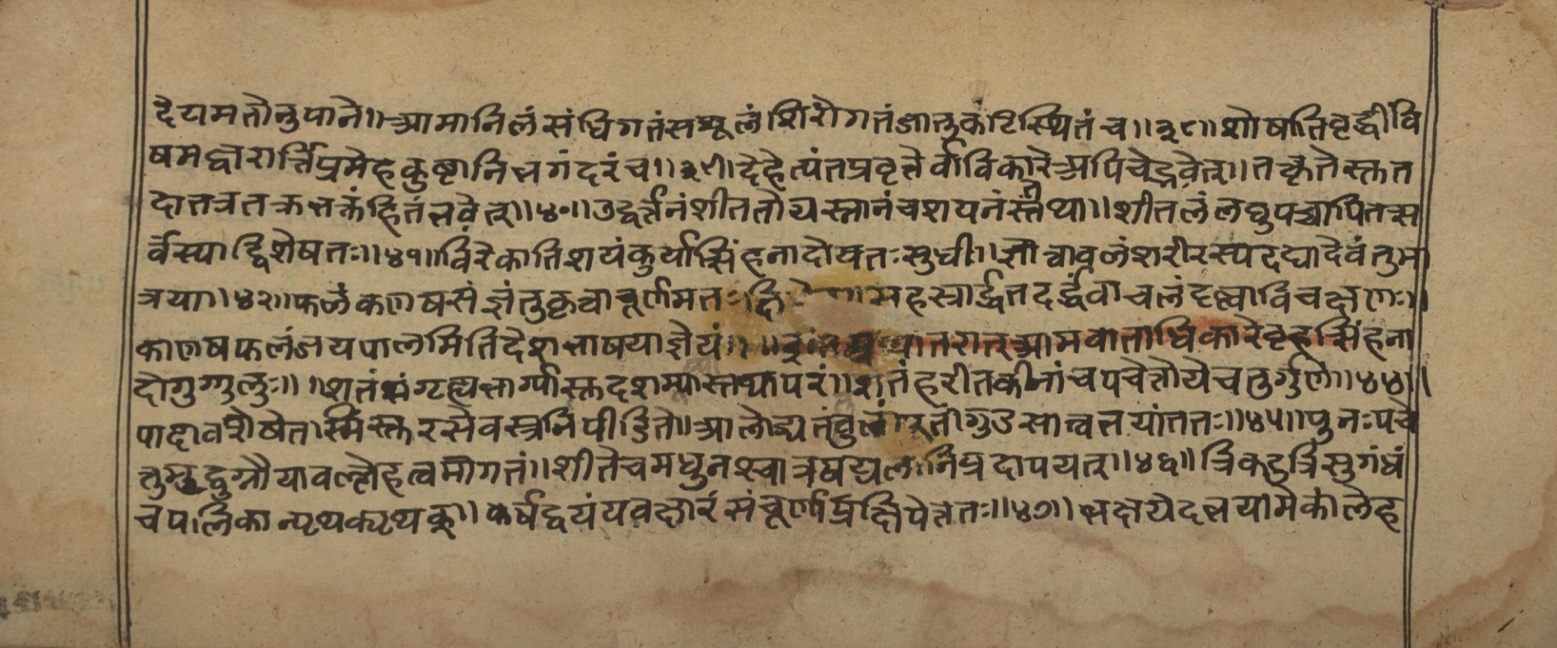 देयमतोनुपाने॥आमानिलंसंधिगतंसशूलंशिरोगतंजानुकटिस्थितंच॥३८॥शोषातिवृद्धीवि
षमद्वारार्त्तिप्रमेहकुष्टानिभगंदरंच॥३९॥देहेत्यंतप्रवृत्तेर्वाविकारेअपिचेद्भवेत्॥तत्कृतेस्तत
दोतत्रतक्रभक्तंहितंभवेत्॥४०॥उद्वर्त्तनंशीततोयस्नानंचशयनंस्तथा॥शीतलंलघुपच्चापितत्स
र्वस्याद्विशेषतः॥४१॥विरेकातिशयंकुर्यात्सिंहनादोयतःसुधी॥ज्ञात्वाबलंशरीरस्यदद्यादेवंतुमा
त्रया॥४२॥फलंकाणषसंज्ञंतुकृत्वाचूर्णमतः सहस्रार्द्धतदर्द्धंवाबलंदृष्ट्वाविचक्षणः॥
काणषफलंजयपालमितिदेशभाषयाज्ञेयं॥ आमवाताधिकारेवृहत्सिंहना
दोगुग्गुलुः॥ ॥शतंसंगृह्यभार्ग्यास्तदशमूल्यास्तथापरं॥शतंहरीतकीनांचपचेत्तोयेचतुर्गुणे॥४४॥
पादावशेषेतस्मिंस्तरसेवस्त्रनिपीडिते॥आलोड्यतंतुलां गुडसात्वभयांततः॥४५॥पुनःपचे
त्तुमृद्वग्नौयावल्लेहत्वमागतं॥शीतेचमधुनश्चात्रषट्पलानिप्रदापयेत्॥४६॥त्रिकटुत्रिसुगंधं
चपलिकान्पृथक्पृथक्॥कर्षद्वयंयवक्षारंसंचूर्ण्यप्रक्षिपेत्ततः॥४७॥भक्षयेदभयामेकांलेह